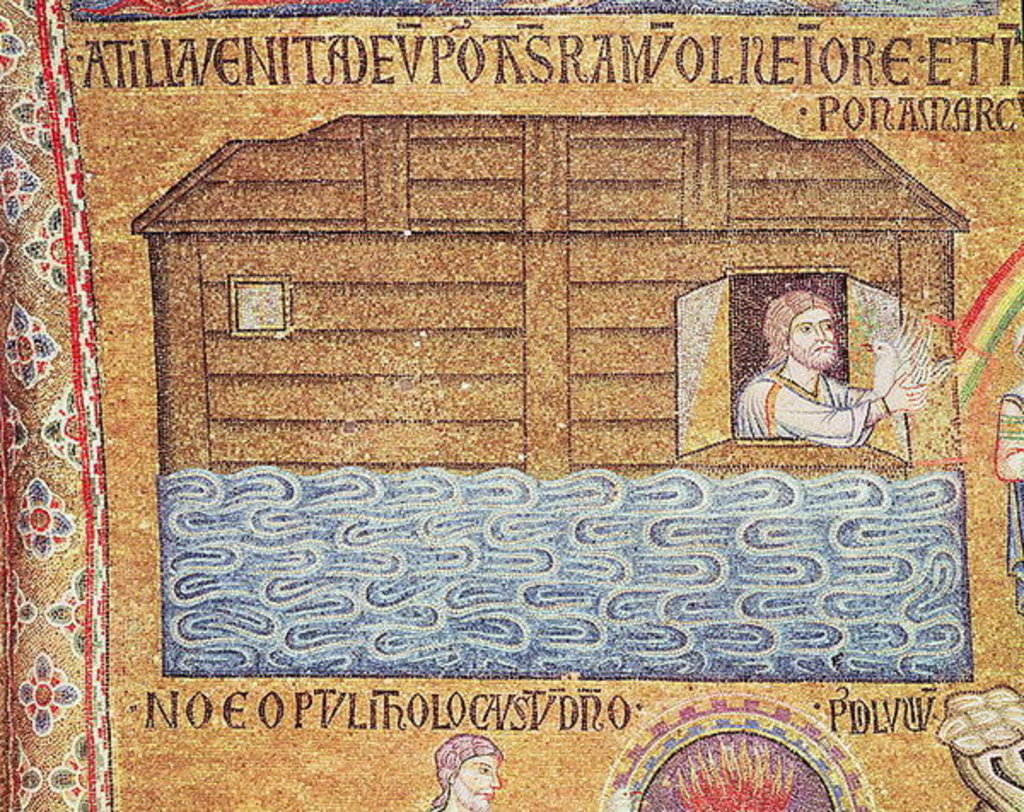 AT ILLA VENIT AD EV PORTAS RAMV OLIVE I ORE · ET I
· PONAM ARCV
· NOE OPTVLIT HOLOCAVSTV DNO · P DILVVIV